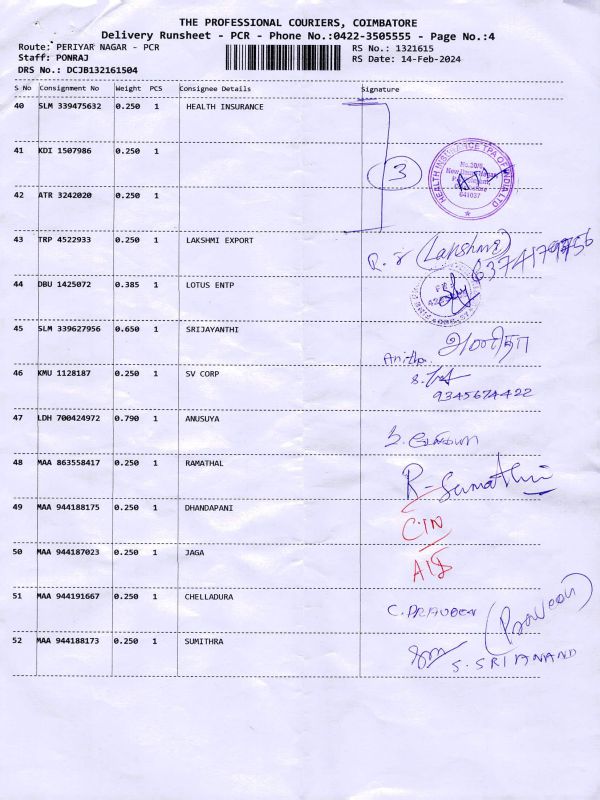 THE PROFESSIONAL COURIERS, COIMBATORE
Delivery Runsheet - PCR - Phone No.:0422-3505555 - Page No.:4
Route: PERIYAR NAGAR - PCR
RS No.: 1321615
Staff: PONRAJ
RS Date: 14-Feb-2024
DRS No.: DCJB132161504
S No Consignment No Weight PCS Consignee Details Signature
40 SLM 339475632 0.250 1 HEALTH INSURANCE
41 KDI 1507986 0.250 1
3
HEALTH INSURANCE TPA OF INDIA LTD
641037
42 ATR 3242020 0.250 1
43 TRP 4522933 0.250 1 LAKSHMI EXPORT
44 DBU 1425072 0.385 1 LOTUS ENTP
45 SLM 339627956 0.650 1 SRIJAYANTHI
Anitha
46 KMU 1128187 0.250 1 SV CORP
9345674422
47 LDH 700424972 0.790 1 ANUSUYA
48 MAA 863558417 0.250 1 RAMATHAL R-Sumathi
49 MAA 944188175 0.250 1 DHANDAPANI
CIN
50 MAA 944187023 0.250 1 JAGA
51 MAA 944191667 0.250 1 CHELLADURA C.PRAVEEN (Praveen)
52 MAA 944188173 0.250 1 SUMITHRA
S. SRIANAND